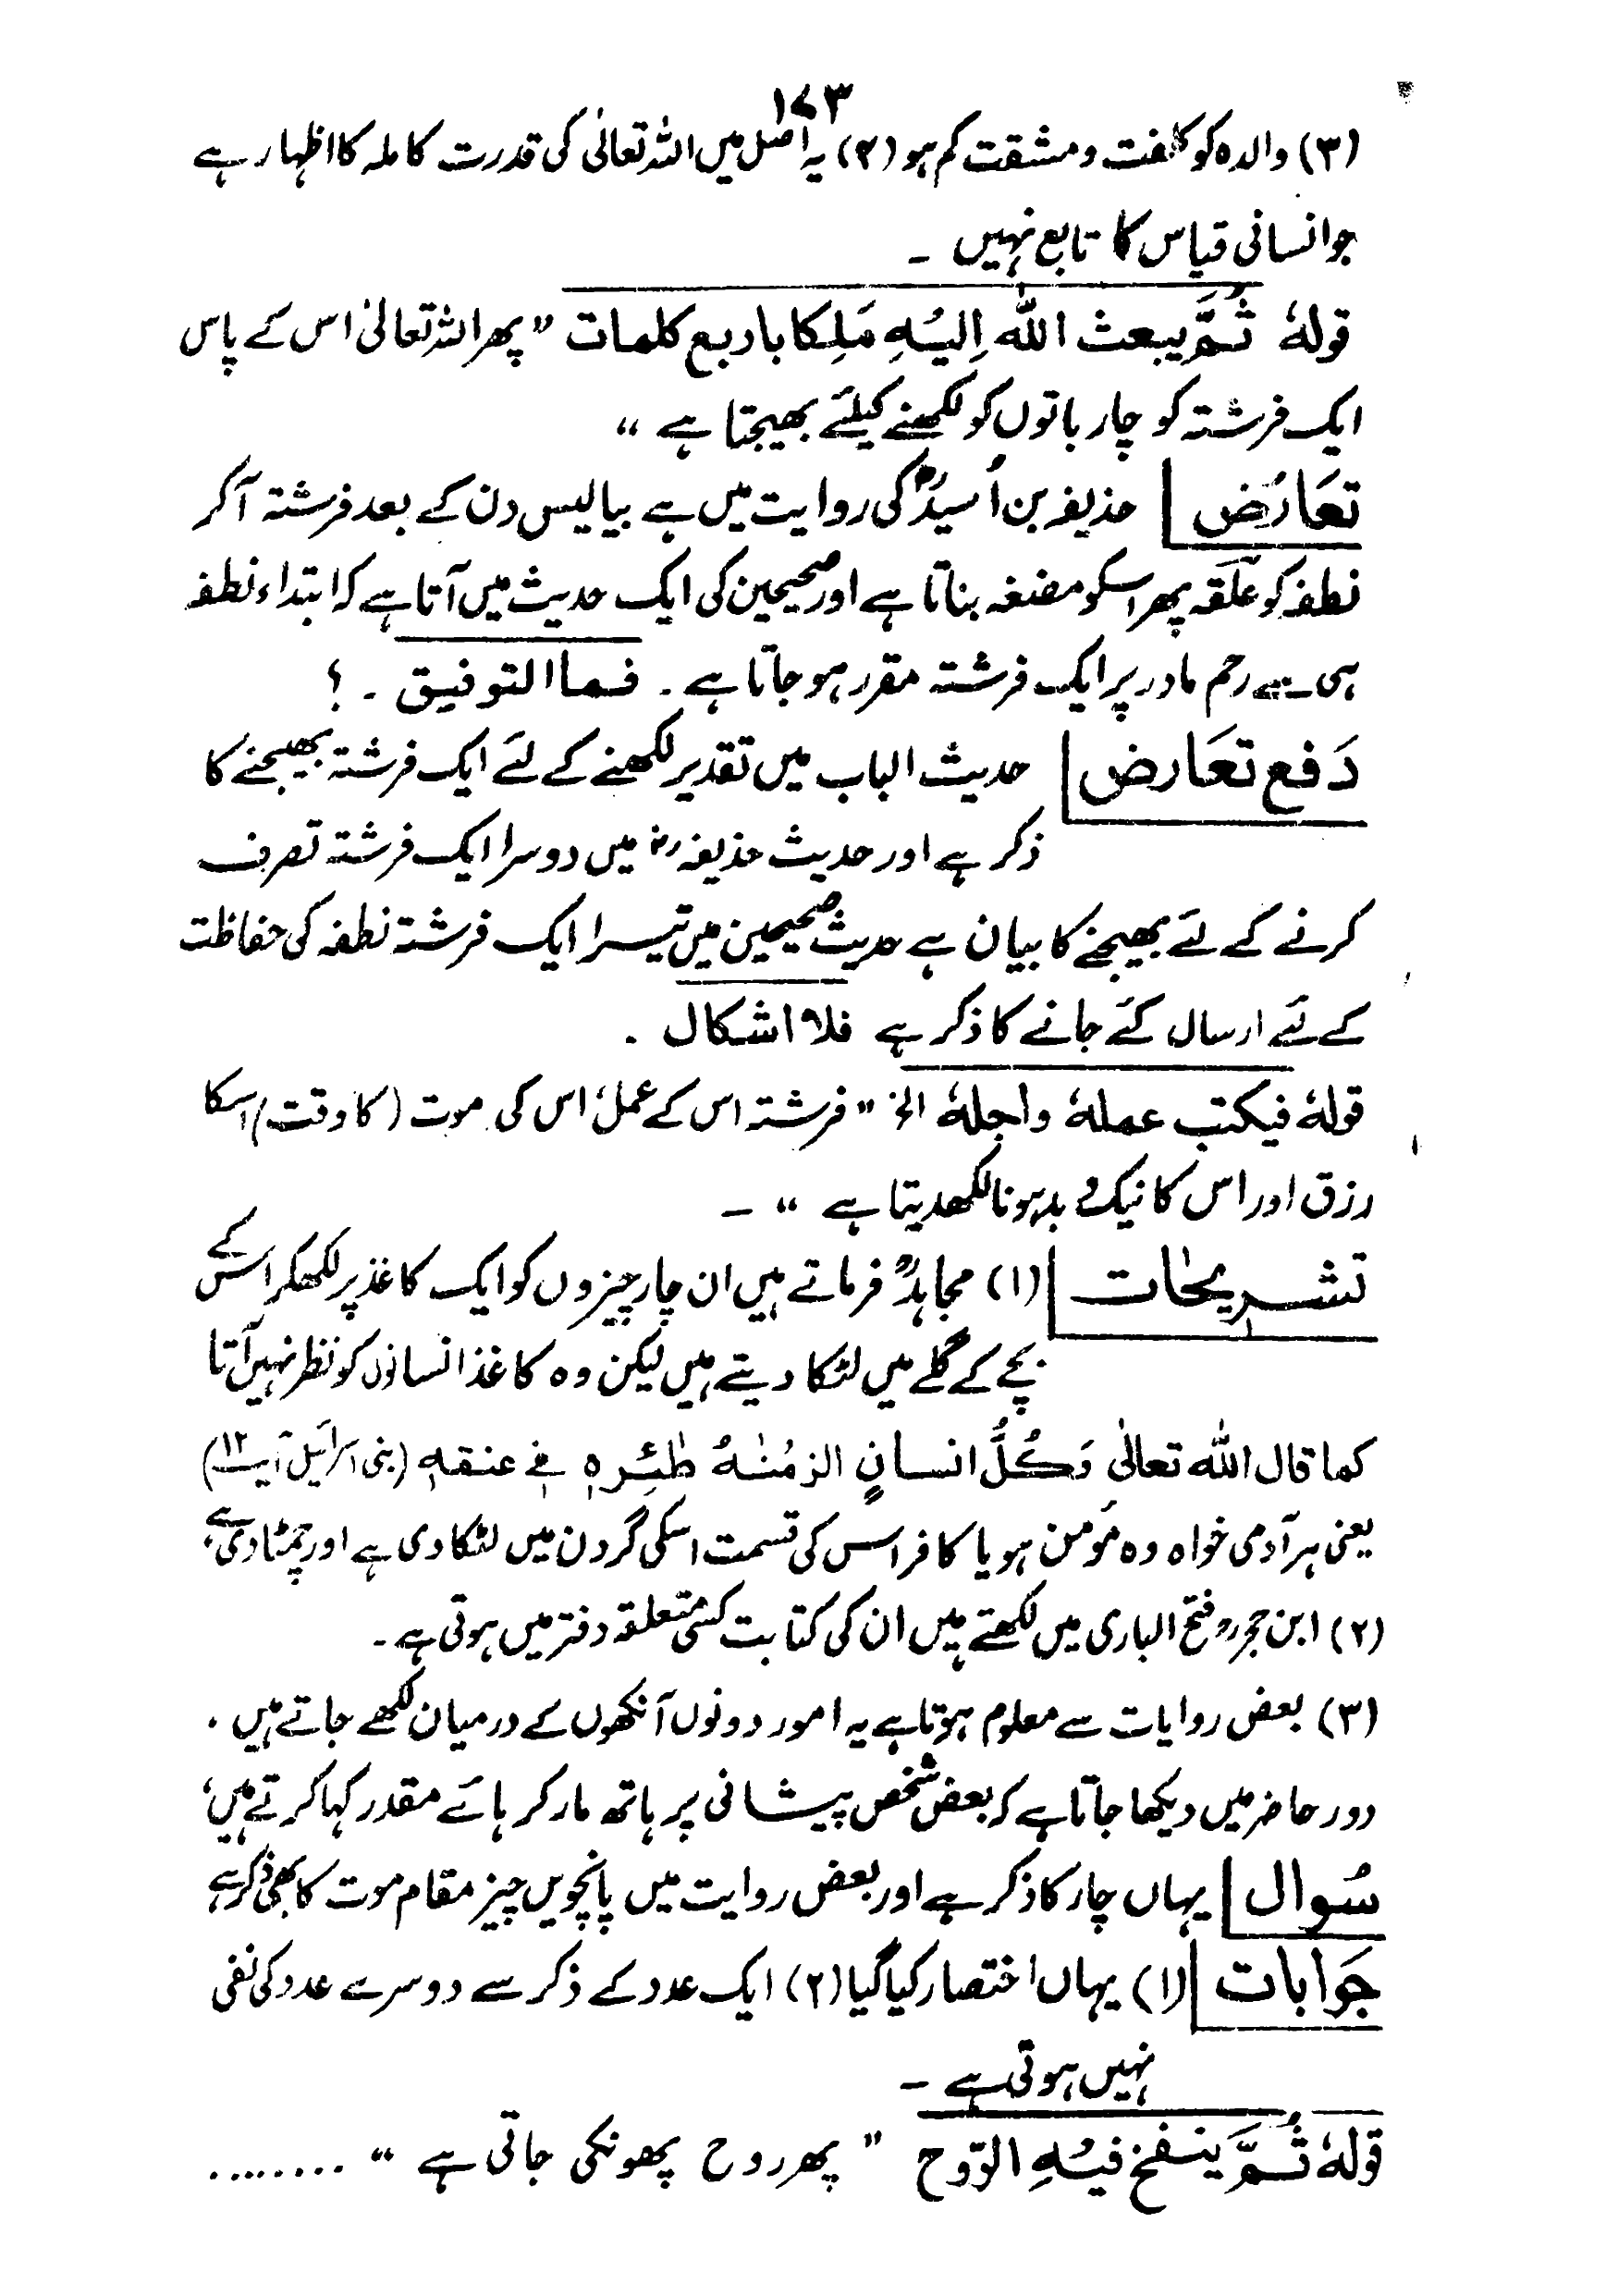 ۱۷۳
(۳) والدہ کو کلفت و مشقت کم ہو (۴) یہ اصل میں اللہ تعالیٰ کی قدرت کاملہ کا اظہار ہے
جو انسانی قیاس کا تابع نہیں ۔
قولہٗ ثُمَّ یبعث اللہ اِلیْہِ مَلِکا باربع کلمات " پھر اللہ تعالیٰ اس کے پاس
ایک فرشتہ کو چار باتوں کو لکھنے کیلئے بھیجتا ہے "
تعَارُض | حذیفہ بن اُسیدؓ کی روایت میں ہے بیالیس دن کے بعد فرشتہ آکر
نطفہ کو عَلَقہ پھر اسکو مضغہ بناتا ہے اور صحیحین کی ایک حدیث میں آتا ہے کہ ابتداء نطفہ
ہی سے رحم مادر پر ایک فرشتہ مقرر ہو جاتا ہے ۔ فما التوفیق ۔ ؟
دَفع تعَارض | حدیث الباب میں تقدیر لکھنے کے لئے ایک فرشتہ بھیجنے کا
ذکر ہے اور حدیث حذیفہ رضؓ میں دوسرا ایک فرشتہ تصرف
کرنے کے لئے بھیجنے کا بیان ہے حدیث صحیحین میں تیسرا ایک فرشتہ نطفہ کی حفاظت
کے لئے ارسال کئے جانے کا ذکر ہے فلا اشکال ۔
قولہٗ فیکتب عملہٗ واجلہٗ الخ " فرشتہ اس کے عمل، اس کی موت (کا وقت) اسکا
رزق اور اس کا نیک و بد ہونا لکھدیتا ہے " ۔
تشریحات | (۱) مجاہدؒ فرماتے ہیں ان چار چیزوں کو ایک کاغذ پر لکھکر اس کے
بچے کے گلے میں لٹکا دیتے ہیں لیکن وہ کاغذ انسانوں کو نظر نہیں آتا
کما قال اللہ تعالیٰ وَکُلَّ انسانٍ الزمْنٰہُ طٰئِرہٖ فے عنقہٖ (بنی اسرائیل آیت ۱۲)
یعنی ہر آدمی خواہ وہ مؤمن ہو یا کافر اس کی قسمت اسکی گردن میں لٹکا دی ہے اور چمٹا دی ہے،
(۲) ابن حجرؒ فتح الباری میں لکھتے ہیں ان کی کتابت کسی متعلقہ دفتر میں ہوتی ہے ۔
(۳) بعض روایات سے معلوم ہوتا ہے یہ امور دونوں آنکھوں کے درمیان لکھے جاتے ہیں ۔
دور حاضر میں دیکھا جاتا ہے کہ بعض شخص پیشانی پر ہاتھ مار کر ہائے مقدر کہا کرتے ہیں،
سُوال | یہاں چار کا ذکر ہے اور بعض روایت میں پانچویں چیز مقام موت کا بھی ذکر ہے
جَوابات | (۱) یہاں اختصار کیا گیا (۲) ایک عدد کے ذکر سے دوسرے عدد کی نفی
نہیں ہوتی ہے ۔
قولہٗ ثُمَّ ینفخ فیْہِ الرّوح " پھر روح پھونکی جاتی ہے " ........